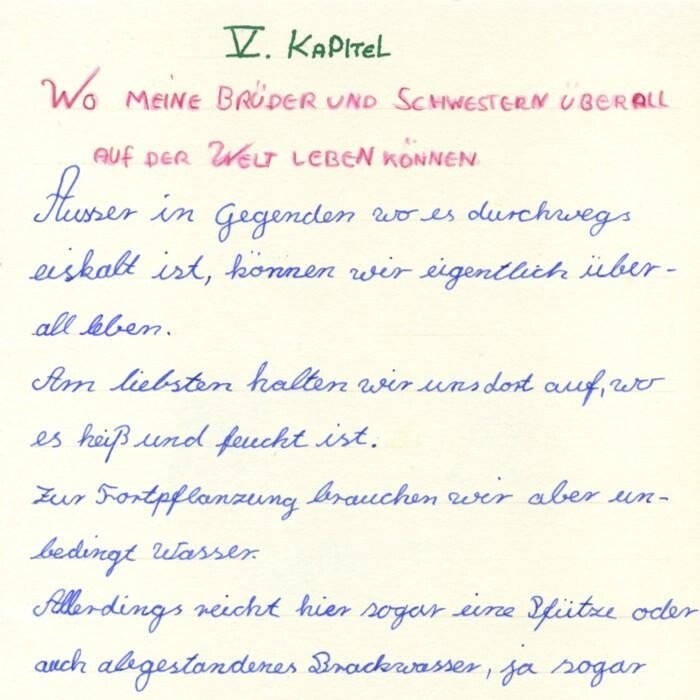 V. KAPITEL
WO MEINE BRÜDER UND SCHWESTERN ÜBERALL
AUF DER WELT LEBEN KÖNNEN
Ausser in Gegenden wo es durchwegs
eiskalt ist, können wir eigentlich über-
all leben.
Am liebsten halten wir uns dort auf, wo
es heiß und feucht ist.
Zur Fortpflanzung brauchen wir aber un-
bedingt Wasser.
Allerdings reicht hier sogar eine Pfütze oder
auch abgestandenes Brackwasser, ja sogar